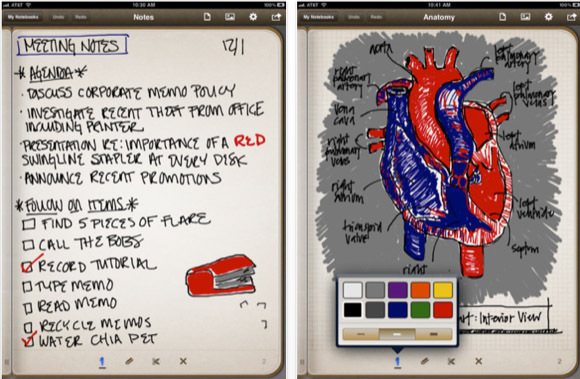 AT&T
10:30 AM
My Notebooks
Undo
Redo
Notes
MEETING NOTES
12/1
*AGENDA*
· DISCUSS CORPORATE MEMO POLICY
· INVESTIGATE RECENT THEFT FROM OFFICE
INCLUDING PRINTER
· PRESENTATION RE: IMPORTANCE OF A RED
SWINGLINE STAPLER AT EVERY DISK
· ANNOUNCE RECENT PROMOTIONS
*FOLLOW ON ITEMS*
FIND 5 PIECES OF FLARE
CALL THE BOBS
RECORD TUTORIAL
TYPE MEMO
READ MEMO
RECYCLE MEMOS
WATER CHIA PET
2
AT&T
10:41 AM
My Notebooks
Undo
Redo
Anatomy
aorta
left
pulmonary
artery
right
pulmonary
artery
left
pulmonary
veins
vena
cava
right
pulmonary
veins
left
atrium
right
atrium
left
ventricle
septum
right
art: Interior View
2